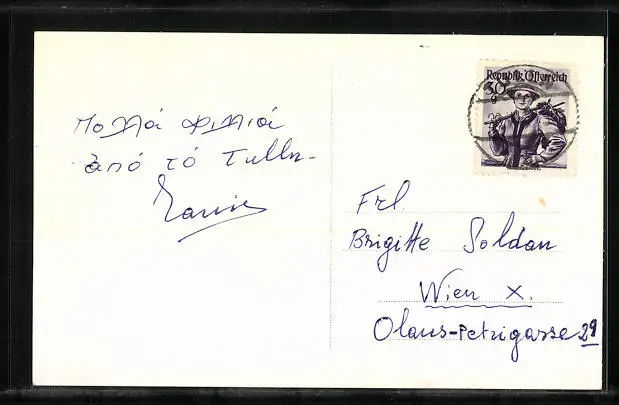 Πολλά φιλιά
από τό Tulln-
Republik Österreich
30
g
Frl.
Brigitte Soldan
Wien X.
Olaus-Petrigasse 29